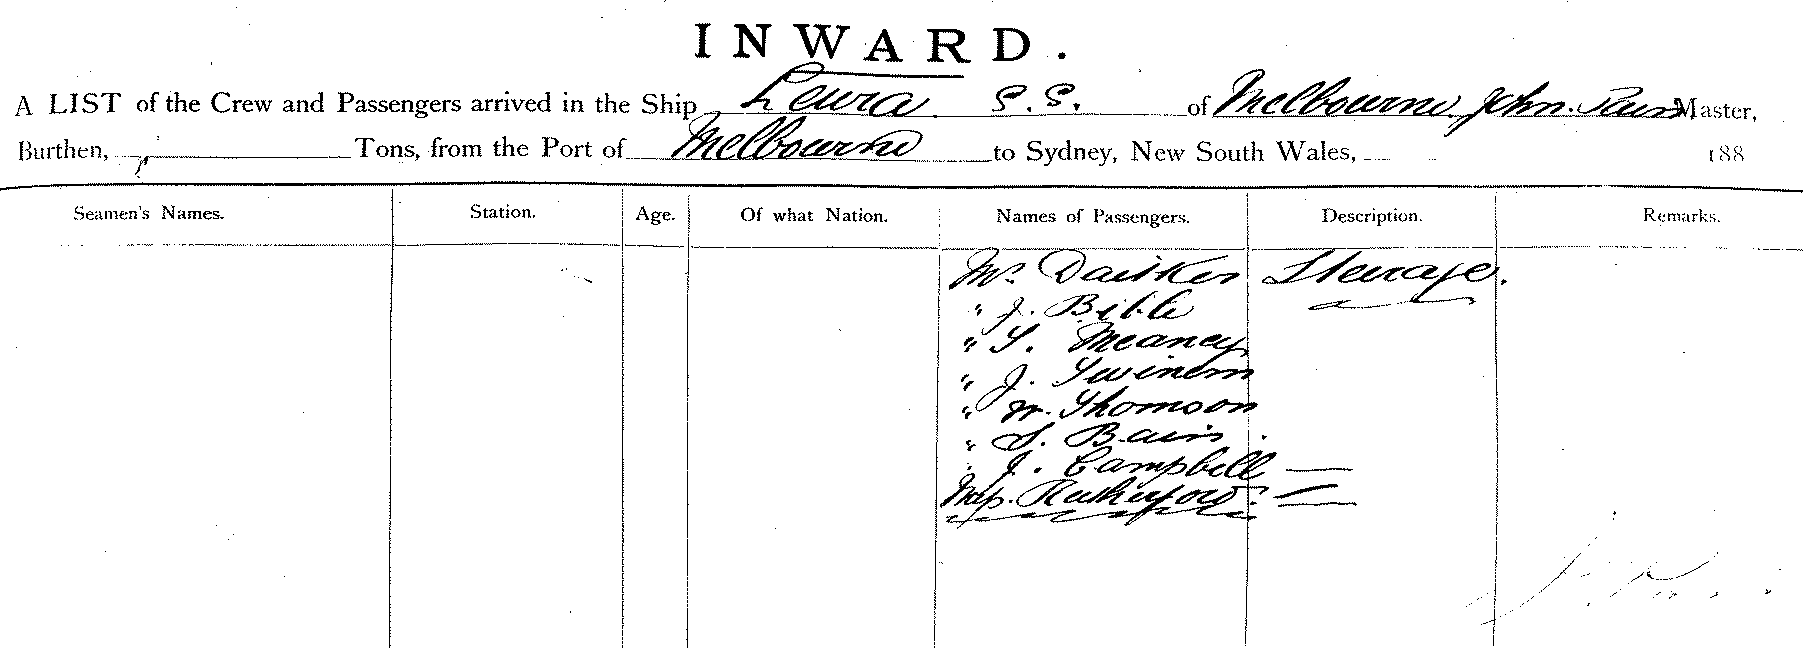 INWARD.
A LIST of the Crew and Passengers arrived in the Ship Leura S.S. of Melbourne John Master,
Burthen, Tons, from the Port of Melbourne to Sydney, New South Wales, 188
Seamen's Names. Station. Age. Of what Nation. Names of Passengers. Description. Remarks.
Mr. Steerage.
" J. Bible
" S. Meaney
" J.
" W. Thomson
" S. Bain
" J. Campbell —
Rutherford —